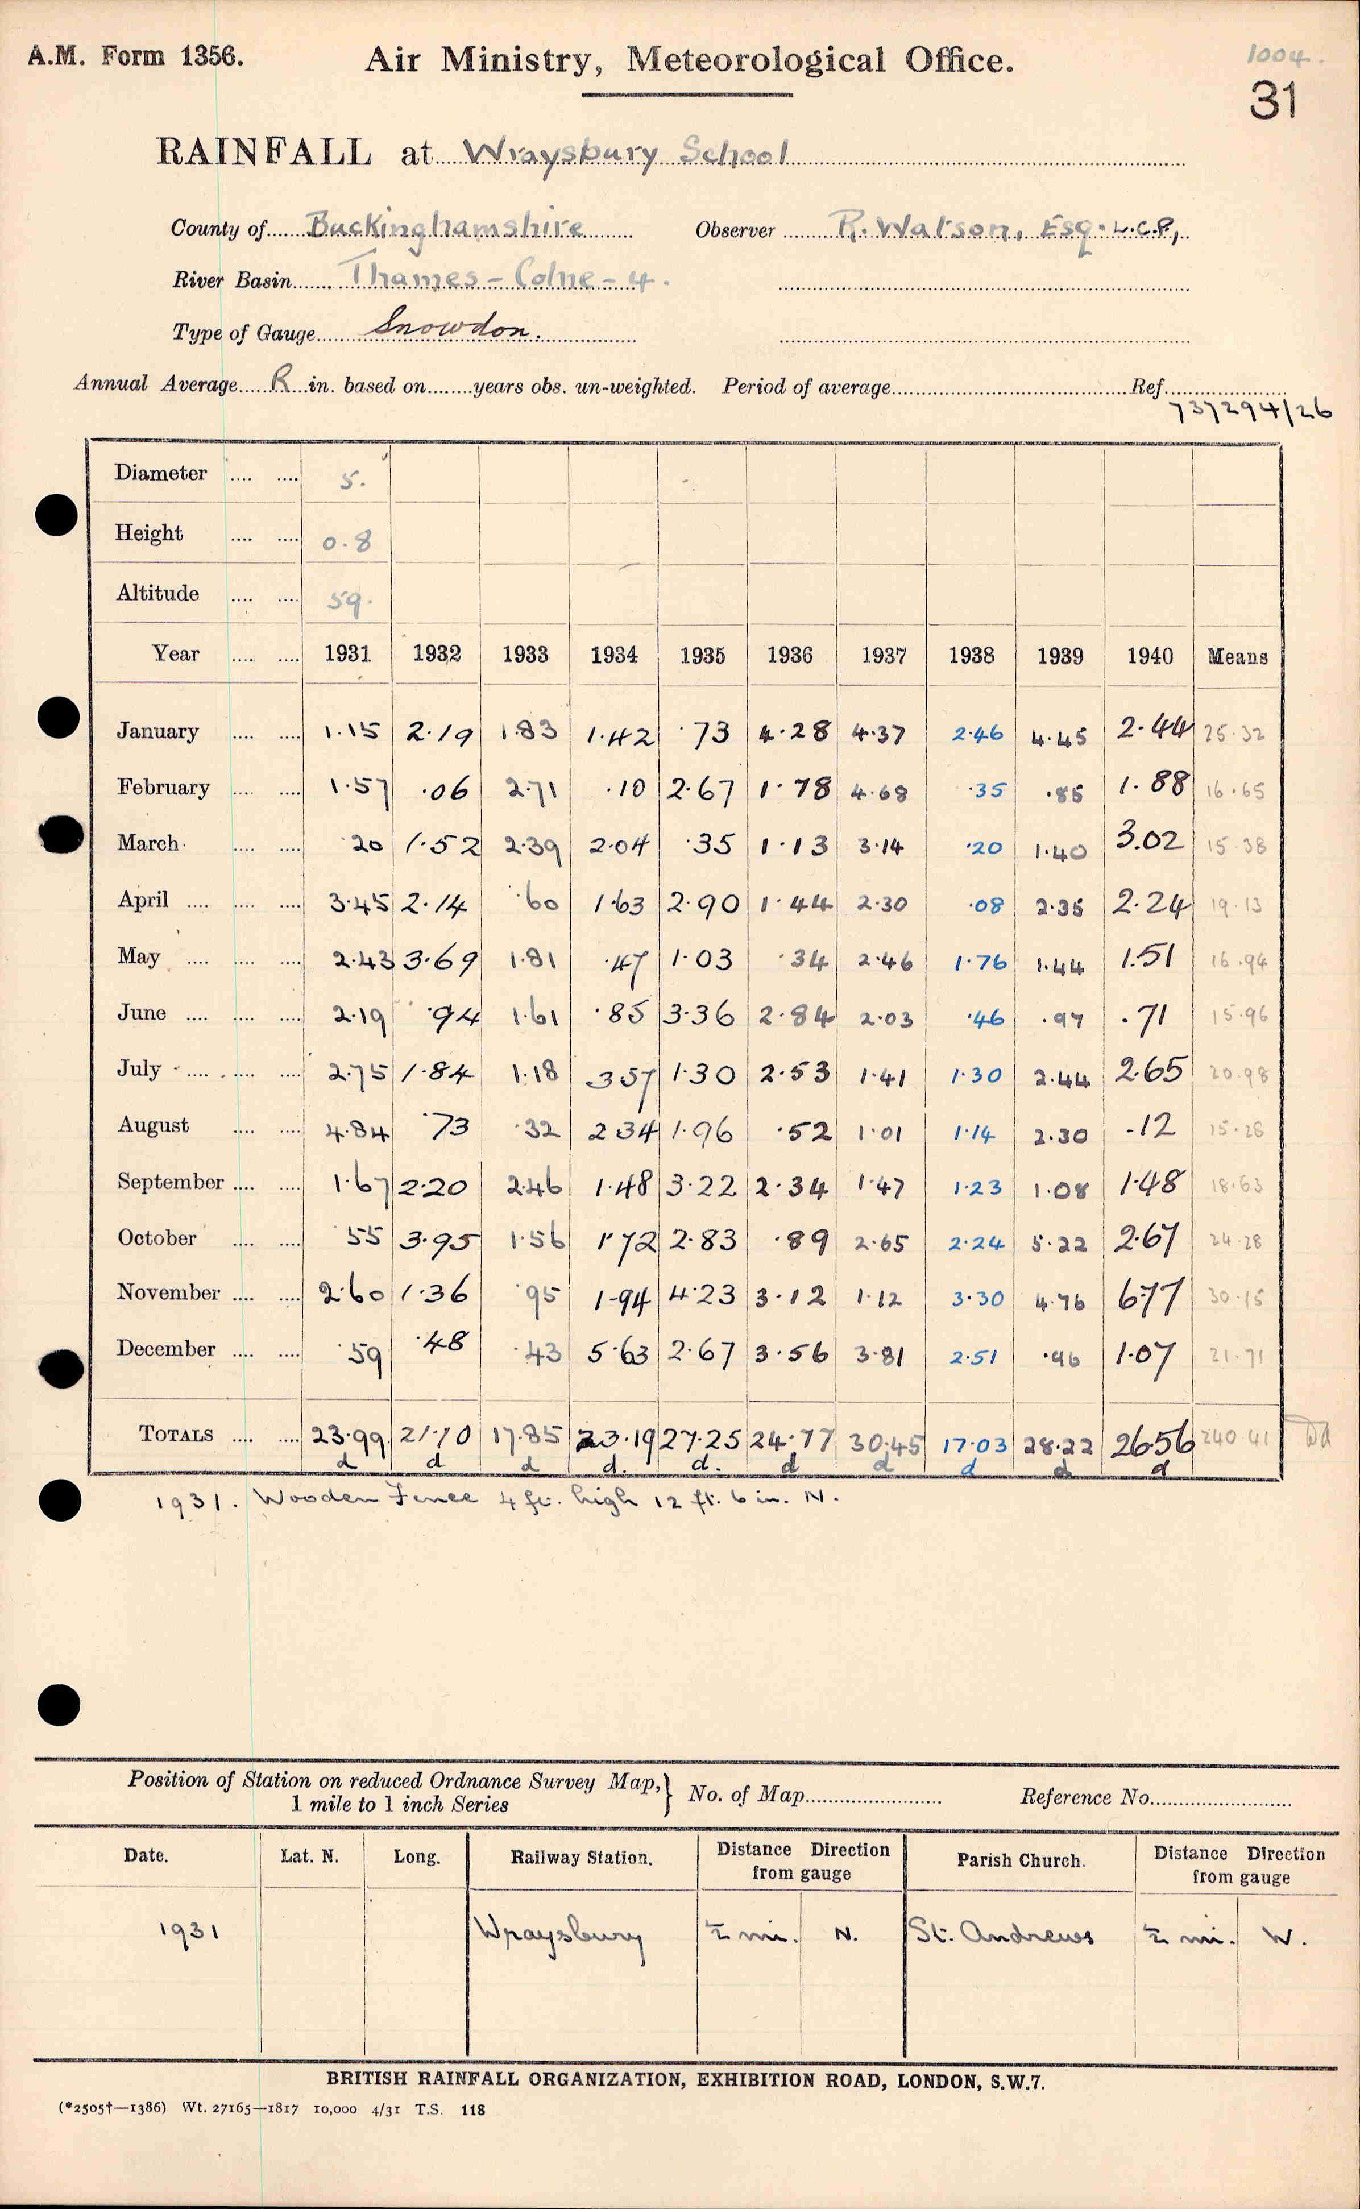 A.M. Form 1356.
Air Ministry, Meteorological Office.
1004.
31
RAINFALL at Wraysbury School
County of Buckinghamshire Observer R. Watson, Esq. L.C.P.,
River Basin Thames - Colne - 4.
Type of Gauge Snowdon.
Annual Average R in. based on years obs. un-weighted. Period of average Ref.
737294/26
Diameter 5.
Height 0.8
Altitude 59.
Year 1931 1932 1933 1934 1935 1936 1937 1938 1939 1940 Means
January 1.15 2.19 1.83 1.42 .73 4.28 4.37 2.46 4.45 2.44 25.32
February 1.57 .06 2.71 .10 2.67 1.78 4.68 .35 .85 1.88 16.65
March .20 1.52 2.39 2.04 .35 1.13 3.14 .20 1.40 3.02 15.38
April 3.45 2.14 .60 1.63 2.90 1.44 2.30 .08 2.35 2.24 19.13
May 2.43 3.69 1.81 .47 1.03 .34 2.46 1.76 1.44 1.51 16.94
June 2.19 .94 1.61 .85 3.36 2.84 2.03 .46 .97 .71 15.96
July 2.75 1.84 1.18 3.57 1.30 2.53 1.41 1.30 2.44 2.65 20.98
August 4.84 .73 .32 2.34 1.96 .52 1.01 1.14 2.30 .12 15.28
September 1.67 2.20 2.46 1.48 3.22 2.34 1.47 1.23 1.08 1.48 18.63
October .55 3.95 1.56 1.72 2.83 .89 2.65 2.24 5.22 2.67 24.28
November 2.60 1.36 .95 1.94 4.23 3.12 1.12 3.30 4.76 6.77 30.15
December .59 .48 .43 5.63 2.67 3.56 3.81 2.51 .96 1.07 21.71
TOTALS 23.99 21.10 17.85 23.19 27.25 24.77 30.45 17.03 28.22 26.56 240.41
d d d d. d. d d d d d
1931. Wooden Fence 4 ft. high 12 ft. 6 in. N.
Position of Station on reduced Ordnance Survey Map, 1 mile to 1 inch Series } No. of Map Reference No.
Date. Lat. N. Long. Railway Station. Distance Direction from gauge Parish Church. Distance Direction from gauge
1931 Wraysbury ½ mi. N. St. Andrews ½ mi. W.
BRITISH RAINFALL ORGANIZATION, EXHIBITION ROAD, LONDON, S.W.7.
(*2505†—1386) Wt. 27165—1817 10,000 4/31 T.S. 118